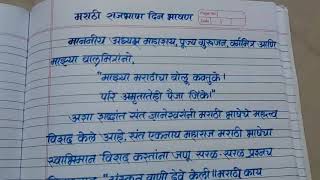 मराठी राजभाषा दिन भाषण
माननीय अध्यक्ष महाशय, पूज्य गुरुजन, वर्गमित्र आणि
माझ्या बालमित्रांनो,
"माझ्या मराठीचा बोलू कवतुके।
परि अमृतातेही पैजा जिंके।
अशा शब्दांत संत ज्ञानेश्वरांनी मराठी भाषेचे महत्त्व
विशद केले आहे, संत एकनाथ महाराज मराठी भाषेचा
स्वाभिमान विशद करतांना जणू सरळ-सरळ प्रश्नच
"संस्कृत वाणी देवे केली॥ मराठी काय